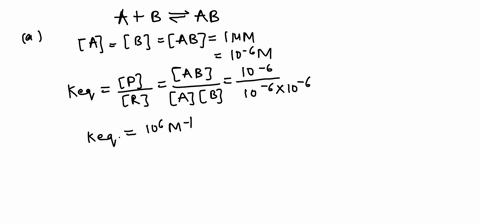 A + B ⇌ AB
(a) [A] = [B] = [AB] = 1 μM
= 10⁻⁶ M
Keq = [P]/[R] = [AB]/[A][B] = 10⁻⁶/10⁻⁶ × 10⁻⁶
Keq. = 10⁶ M⁻¹